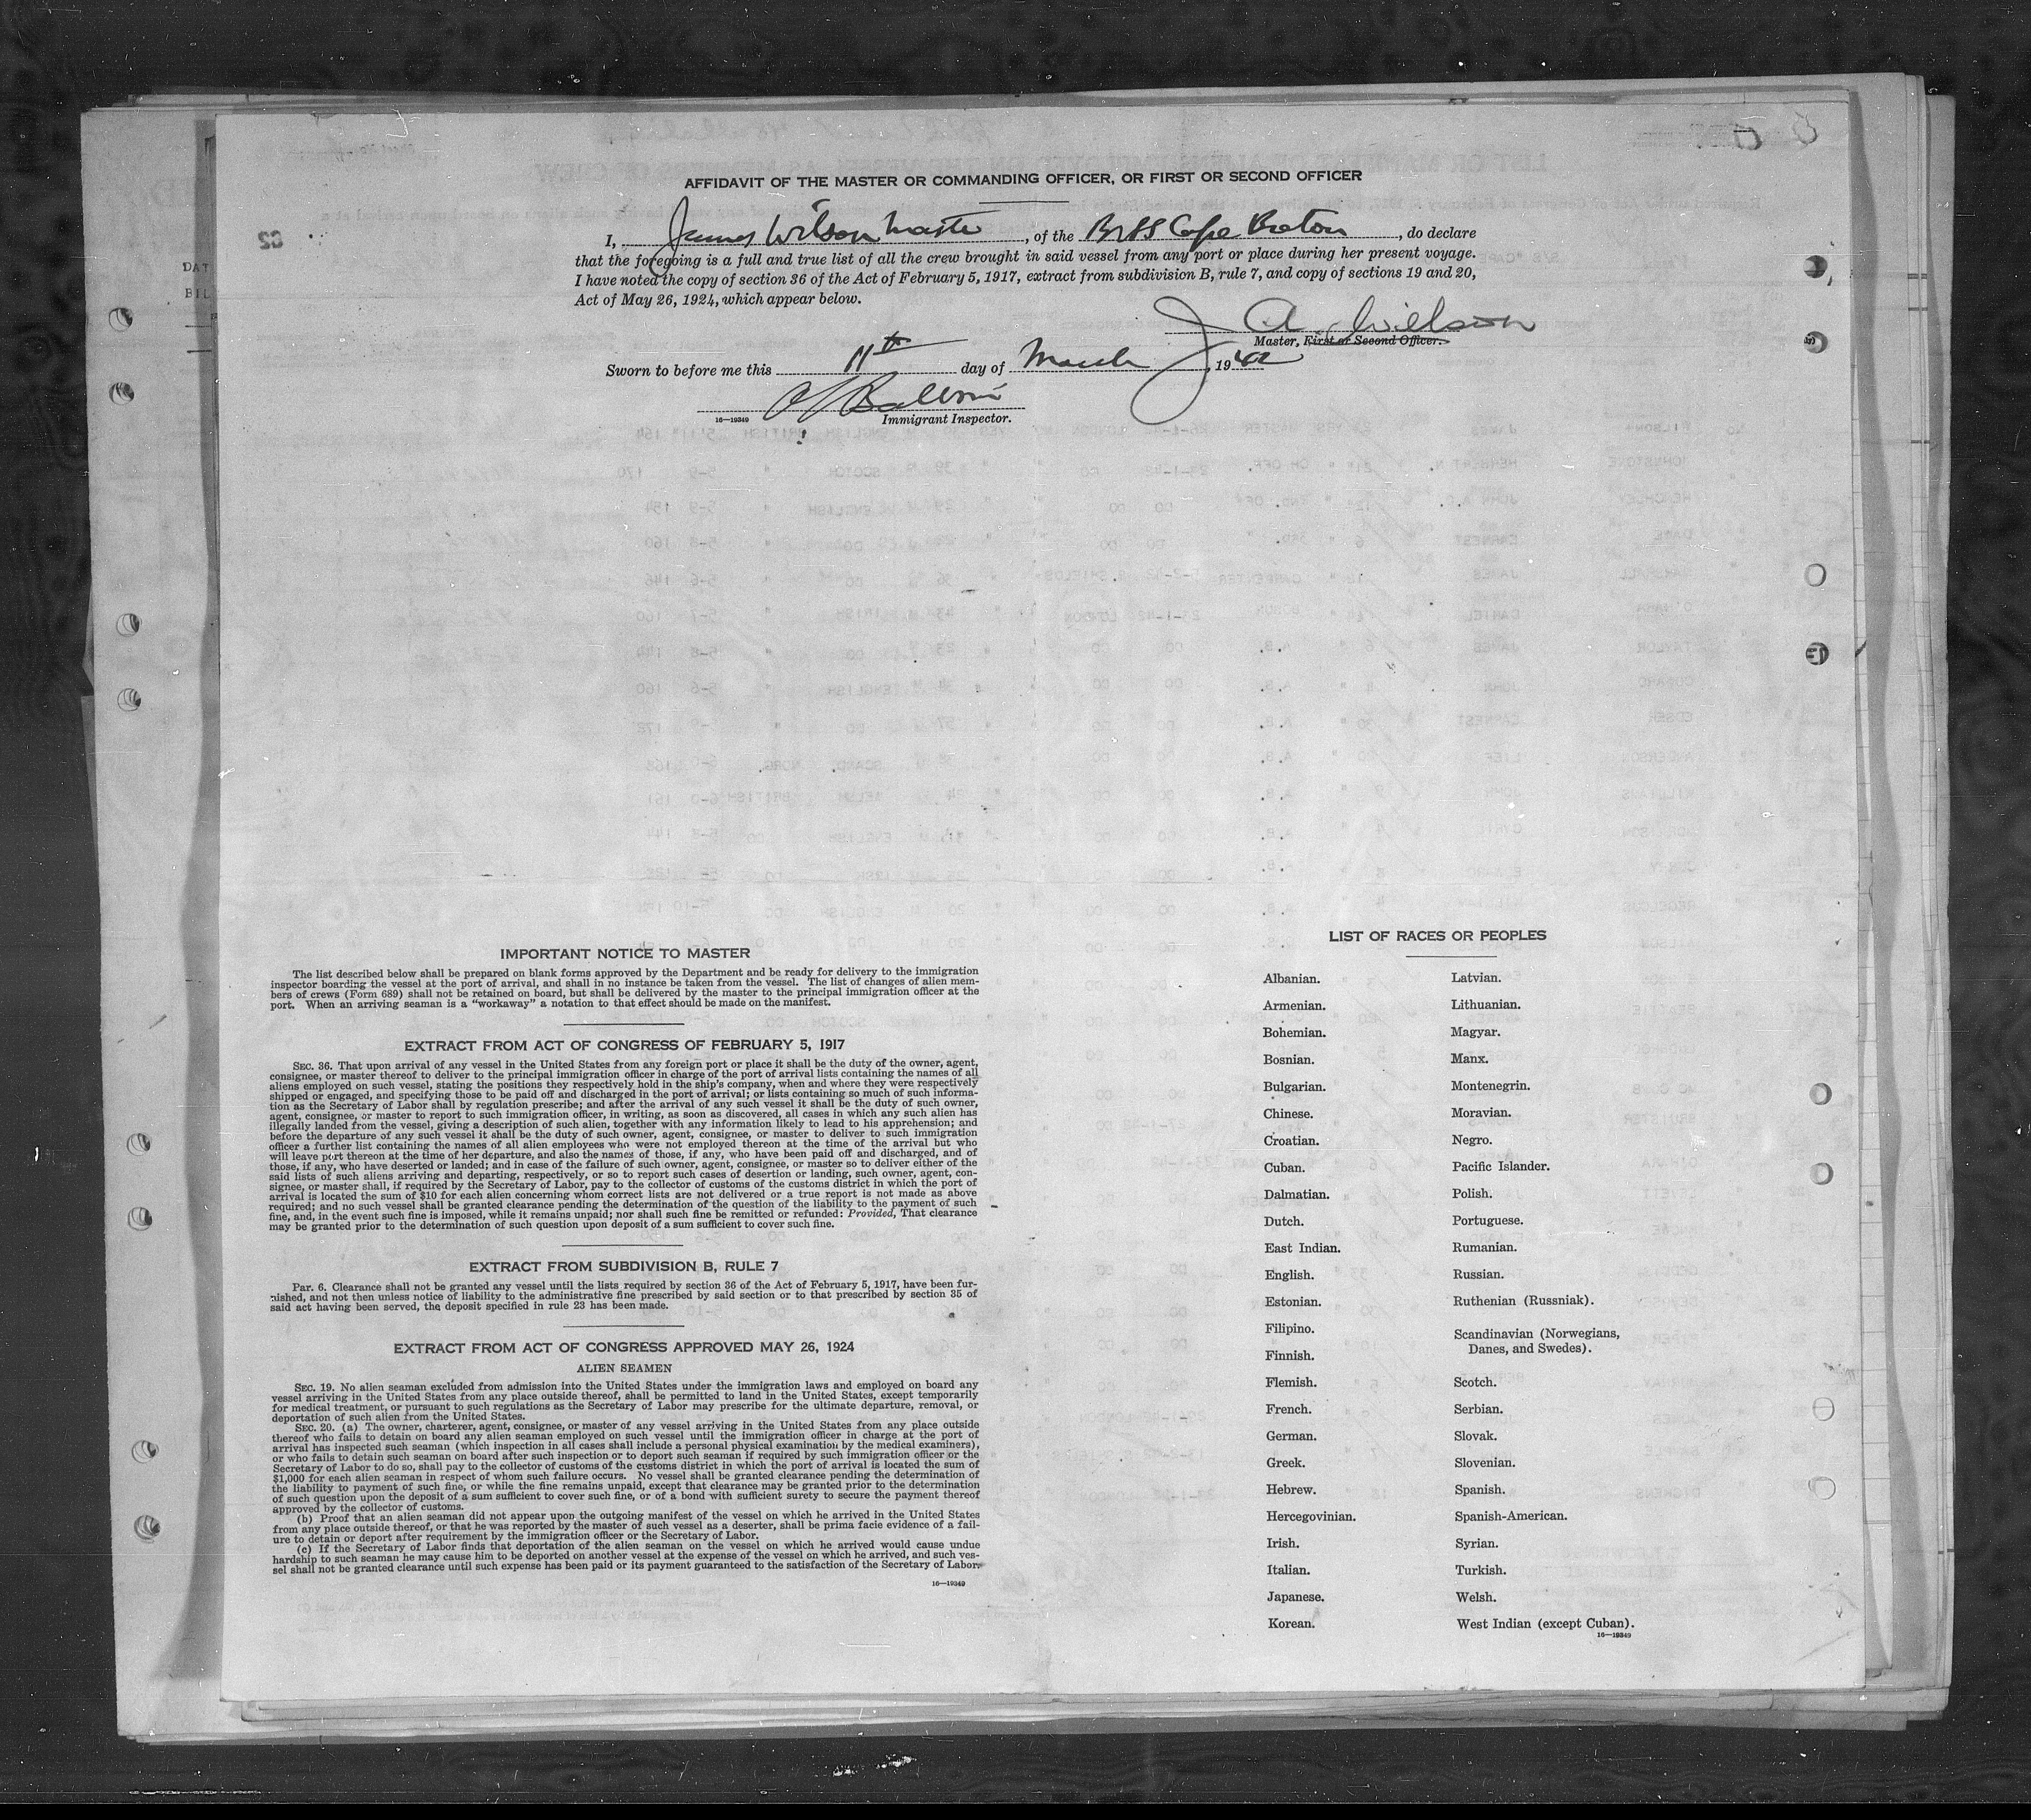 AFFIDAVIT OF THE MASTER OR COMMANDING OFFICER, OR FIRST OR SECOND OFFICER
I, James Wilson Master, of the Br SS Cape Breton, do declare
that the foregoing is a full and true list of all the crew brought in said vessel from any port or place during her present voyage.
I have noted the copy of section 36 of the Act of February 5, 1917, extract from subdivision B, rule 7, and copy of sections 19 and 20,
Act of May 26, 1924, which appear below.
J A. Wilson
Master, First or Second Officer.
Sworn to before me this 11th day of March, 1942
16—19349 Immigrant Inspector.
IMPORTANT NOTICE TO MASTER
The list described below shall be prepared on blank forms approved by the Department and be ready for delivery to the immigration
inspector boarding the vessel at the port of arrival, and shall in no instance be taken from the vessel. The list of changes of alien mem-
bers of crews (Form 689) shall not be retained on board, but shall be delivered by the master to the principal immigration officer at the
port. When an arriving seaman is a "workaway" a notation to that effect should be made on the manifest.
EXTRACT FROM ACT OF CONGRESS OF FEBRUARY 5, 1917
SEC. 36. That upon arrival of any vessel in the United States from any foreign port or place it shall be the duty of the owner, agent,
consignee, or master thereof to deliver to the principal immigration officer in charge of the port of arrival lists containing the names of all
aliens employed on such vessel, stating the positions they respectively hold in the ship's company, when and where they were respectively
shipped or engaged, and specifying those to be paid off and discharged in the port of arrival; or lists containing so much of such informa-
tion as the Secretary of Labor shall by regulation prescribe; and after the arrival of any such vessel it shall be the duty of such owner,
agent, consignee, or master to report to such immigration officer, in writing, as soon as discovered, all cases in which any such alien has
illegally landed from the vessel, giving a description of such alien, together with any information likely to lead to his apprehension; and
before the departure of any such vessel it shall be the duty of such owner, agent, consignee, or master to deliver to such immigration
officer a further list containing the names of all alien employees who were not employed thereon at the time of the arrival but who
will leave port thereon at the time of her departure, and also the names of those, if any, who have been paid off and discharged, and of
those, if any, who have deserted or landed; and in case of the failure of such owner, agent, consignee, or master so to deliver either of the
said lists of such aliens arriving and departing, respectively, or so to report such cases of desertion or landing, such owner, agent, con-
signee, or master shall, if required by the Secretary of Labor, pay to the collector of customs of the customs district in which the port of
arrival is located the sum of $10 for each alien concerning whom correct lists are not delivered or a true report is not made as above
required; and no such vessel shall be granted clearance pending the determination of the question of the liability to the payment of such
fine, and, in the event such fine is imposed, while it remains unpaid; nor shall such fine be remitted or refunded: Provided, That clearance
may be granted prior to the determination of such question upon deposit of a sum sufficient to cover such fine.
EXTRACT FROM SUBDIVISION B, RULE 7
Par. 6. Clearance shall not be granted any vessel until the lists required by section 36 of the Act of February 5, 1917, have been fur-
nished, and not then unless notice of liability to the administrative fine prescribed by said section or to that prescribed by section 35 of
said act having been served, the deposit specified in rule 23 has been made.
EXTRACT FROM ACT OF CONGRESS APPROVED MAY 26, 1924
ALIEN SEAMEN
SEC. 19. No alien seaman excluded from admission into the United States under the immigration laws and employed on board any
vessel arriving in the United States from any place outside thereof, shall be permitted to land in the United States, except temporarily
for medical treatment, or pursuant to such regulations as the Secretary of Labor may prescribe for the ultimate departure, removal, or
deportation of such alien from the United States.
SEC. 20. (a) The owner, charterer, agent, consignee, or master of any vessel arriving in the United States from any place outside
thereof who fails to detain on board any alien seaman employed on such vessel until the immigration officer in charge at the port of
arrival has inspected such seaman (which inspection in all cases shall include a personal physical examination by the medical examiners),
or who fails to detain such seaman on board after such inspection or to deport such seaman if required by such immigration officer or the
Secretary of Labor to do so, shall pay to the collector of customs of the customs district in which the port of arrival is located the sum of
$1,000 for each alien seaman in respect of whom such failure occurs. No vessel shall be granted clearance pending the determination of
the liability to payment of such fine, or while the fine remains unpaid, except that clearance may be granted prior to the determination
of such question upon the deposit of a sum sufficient to cover such fine, or of a bond with sufficient surety to secure the payment thereof
approved by the collector of customs.
(b) Proof that an alien seaman did not appear upon the outgoing manifest of the vessel on which he arrived in the United States
from any place outside thereof, or that he was reported by the master of such vessel as a deserter, shall be prima facie evidence of a fail-
ure to detain or deport after requirement by the immigration officer or the Secretary of Labor.
(c) If the Secretary of Labor finds that deportation of the alien seaman on the vessel on which he arrived would cause undue
hardship to such seaman he may cause him to be deported on another vessel at the expense of the vessel on which he arrived, and such ves-
sel shall not be granted clearance until such expense has been paid or its payment guaranteed to the satisfaction of the Secretary of Labor.
16—19349
LIST OF RACES OR PEOPLES
Albanian.
Armenian.
Bohemian.
Bosnian.
Bulgarian.
Chinese.
Croatian.
Cuban.
Dalmatian.
Dutch.
East Indian.
English.
Estonian.
Filipino.
Finnish.
Flemish.
French.
German.
Greek.
Hebrew.
Hercegovinian.
Irish.
Italian.
Japanese.
Korean.
Latvian.
Lithuanian.
Magyar.
Manx.
Montenegrin.
Moravian.
Negro.
Pacific Islander.
Polish.
Portuguese.
Rumanian.
Russian.
Ruthenian (Russniak).
Scandinavian (Norwegians,
Danes, and Swedes).
Scotch.
Serbian.
Slovak.
Slovenian.
Spanish.
Spanish-American.
Syrian.
Turkish.
Welsh.
West Indian (except Cuban).
16—19349